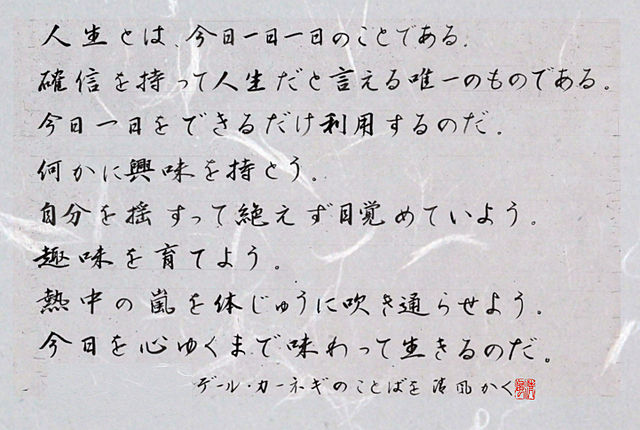 人生とは、今日一日一日のことである.
確信を持って人生だと言える唯一のものである。
今日一日をできるだけ利用するのだ.
何かに興味を持とう。
自分を揺すって絶えず目覚めていよう。
趣味を育てよう。
熱中の嵐を体じゅうに吹き通らせよう.
今日を心ゆくまで味わって生きるのだ。
デール・カーネギのことばを 清風 かく